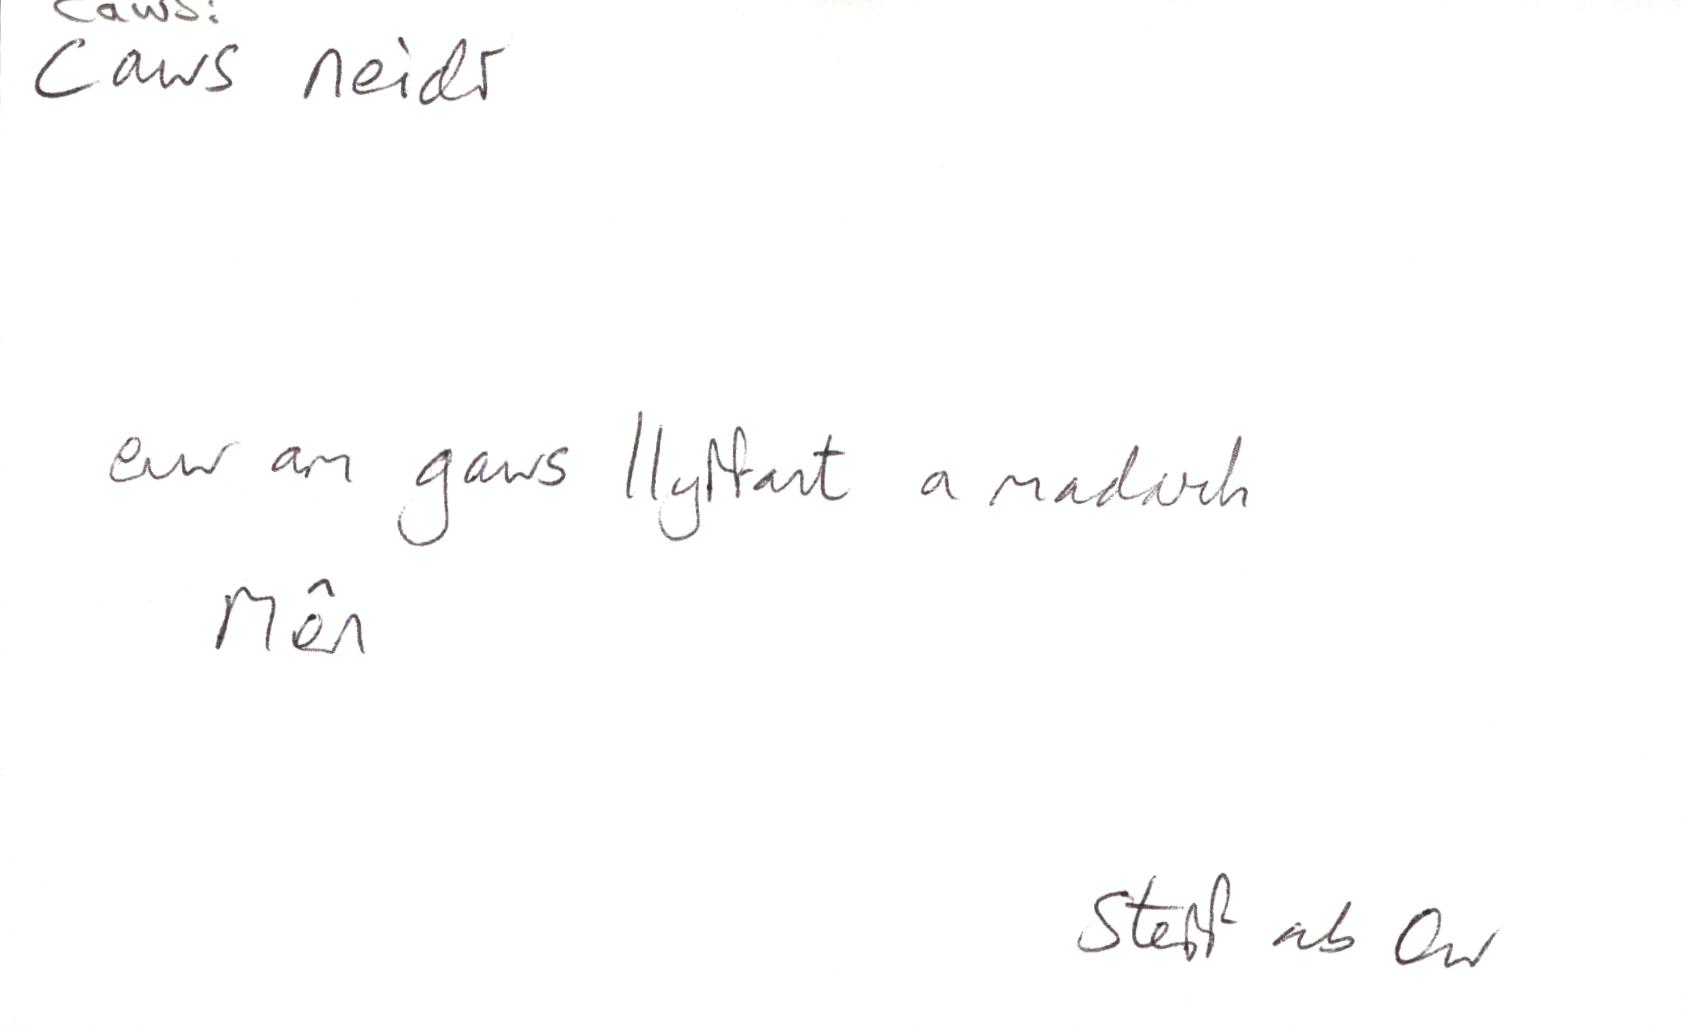 Caws:
Caws neidr
enw am gaws llyffant a madarch
Môn
Steff ab Ow